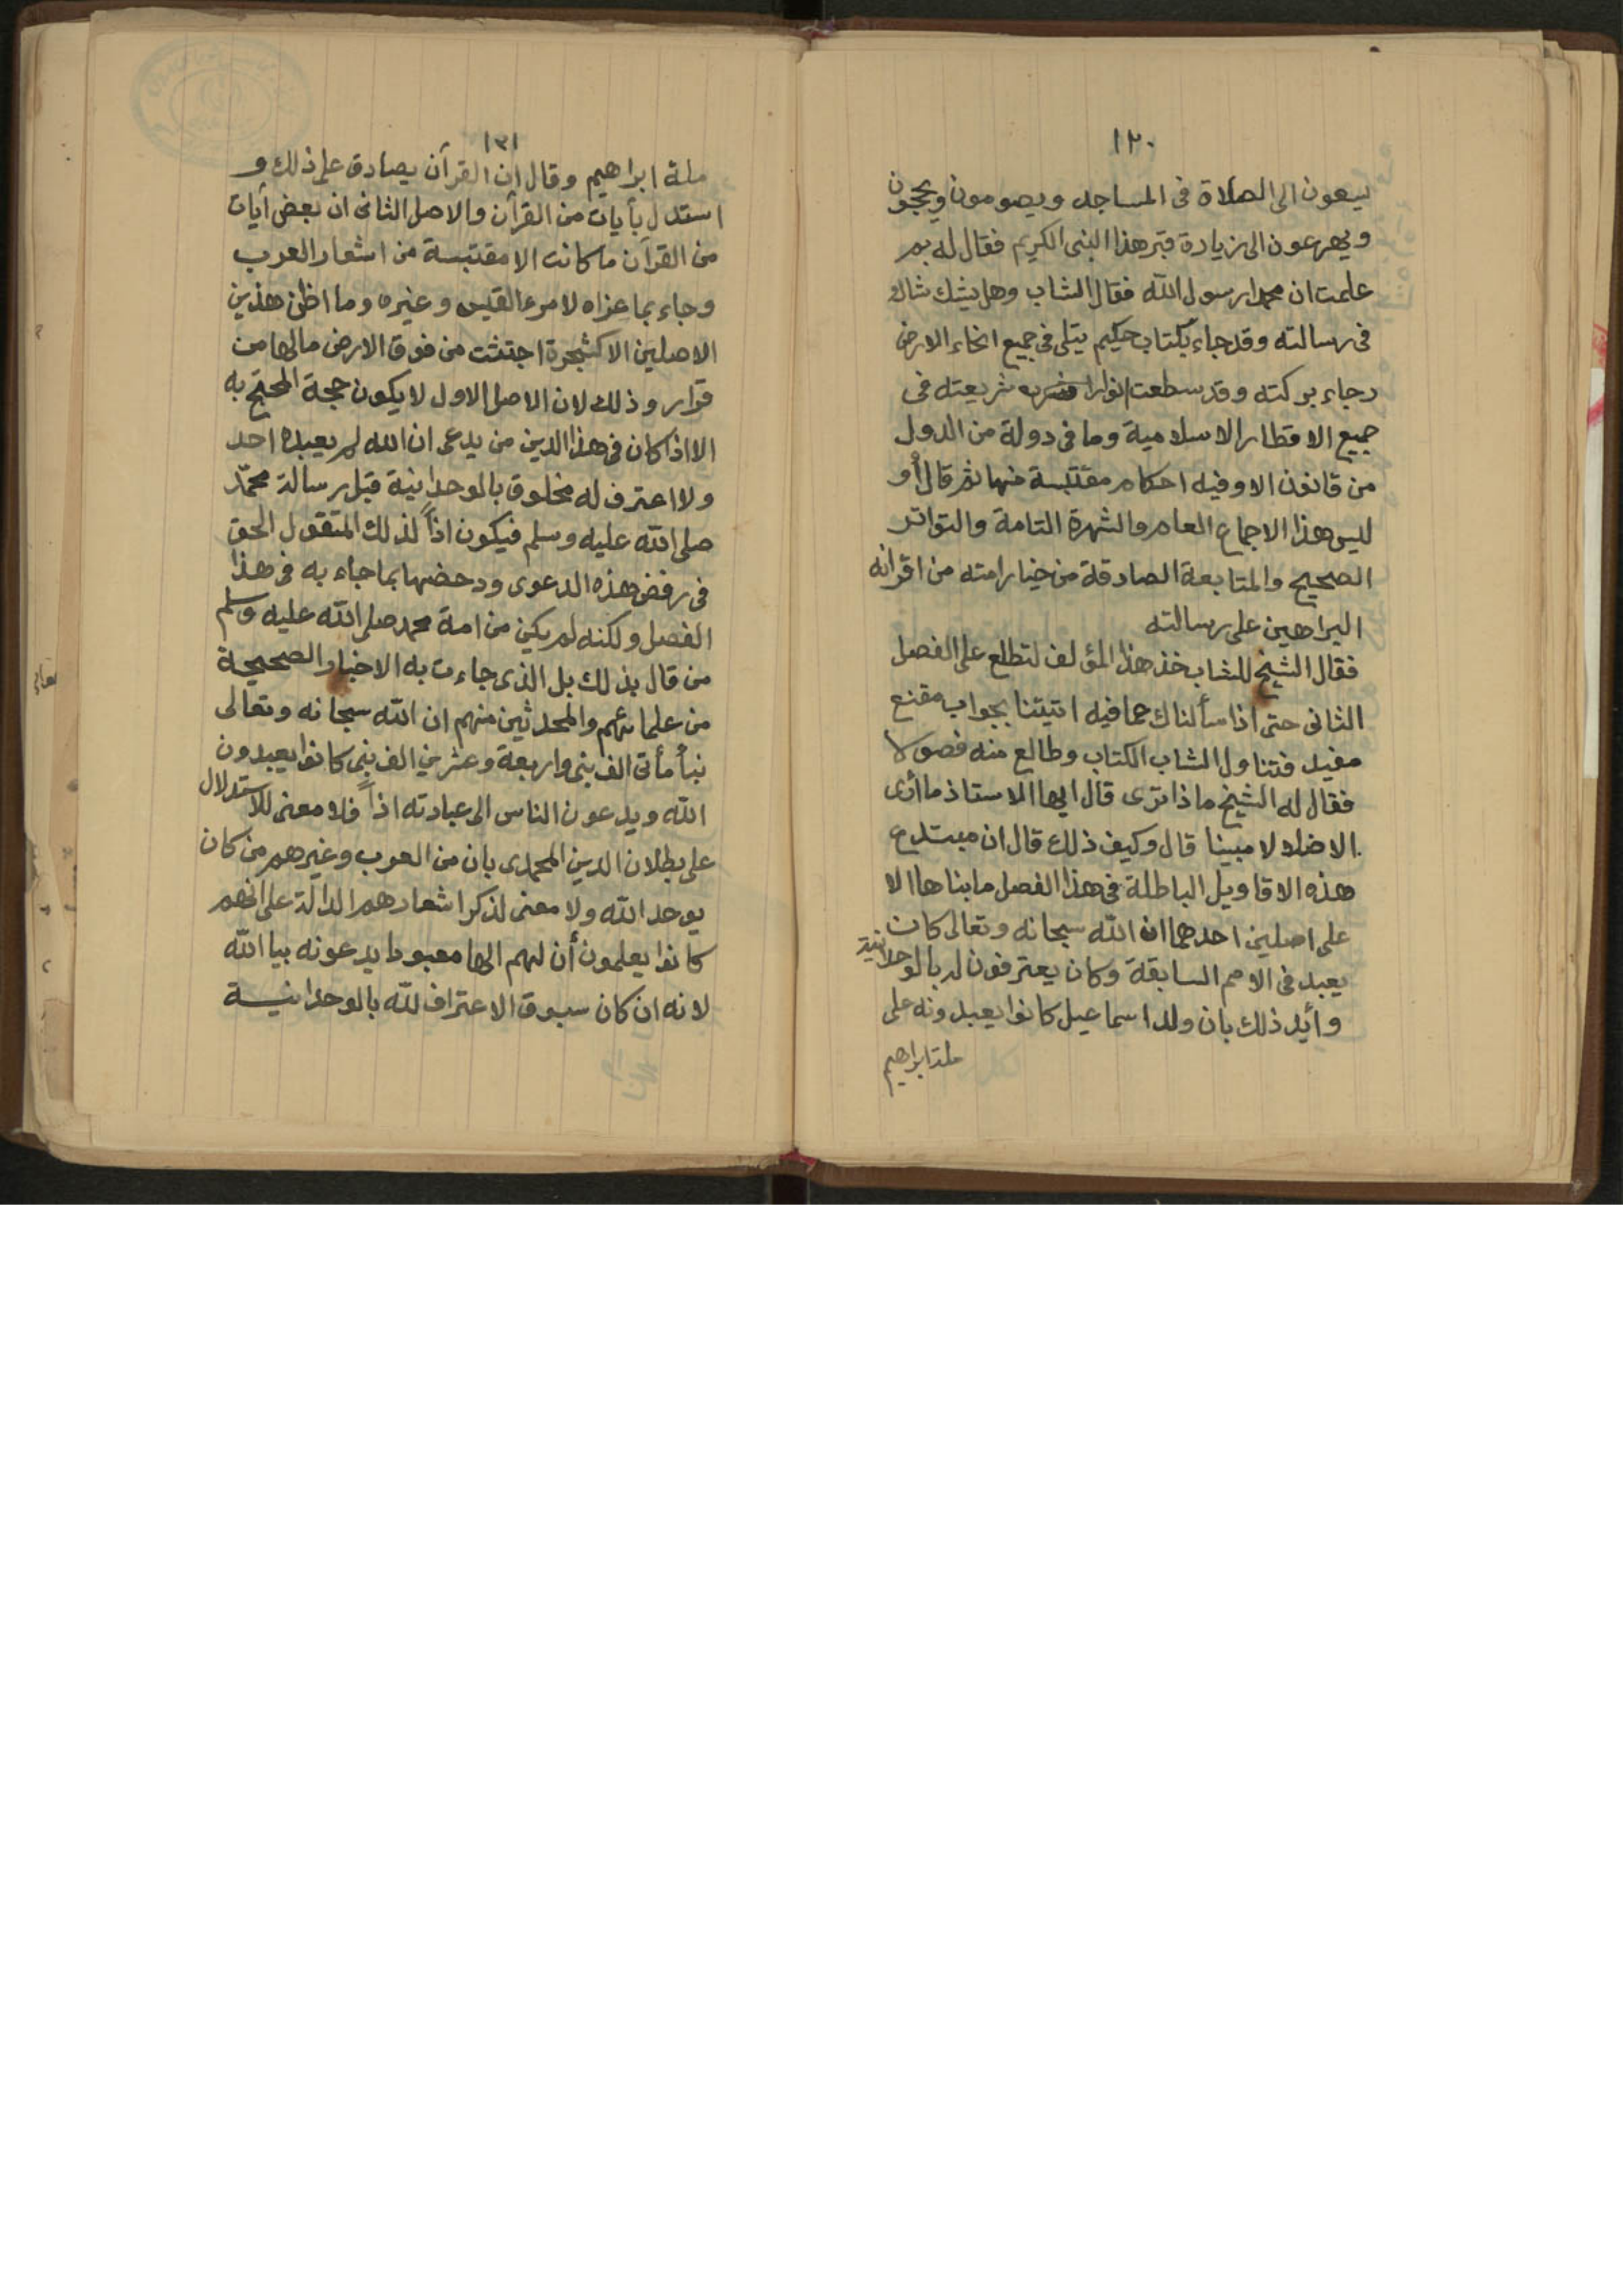 ١٢٠
يسعون الى الصلاة فى المساجد ويصومون ويحجون
ويهرعون الى زيادة قبر هذا النبى الكريم فقال له بم
علمت ان محمدا رسول الله فقال الشاب وهل يشك شاك
فى رسالته وقد جاء بكتاب حكيم يتلى فى جميع انحاء الارض
رجاء بركته وقد سطعت انوار شريعته فى
جميع الاقطار الاسلامية وما فى دولة من الدول
من قانون الا وفيه احكام مقتبسة منها ثم قال أو
ليس هذا الاجماع العام والشهرة التامة والتواتر
الصحيح والمتابعة الصادقة من خيار امته من اقرانه
البراهين على رسالته
فقال الشيخ للشاب خذ هذا المؤلف لتطلع على الفصل
الثانى حتى اذا سألناك عما فيه اتيتنا بجواب مقنع
مفيد فتناول الشاب الكتاب وطالع منه فصولا
فقال له الشيخ ماذا ترى قال ايها الاستاذ ما أرى
الا ضلالا مبينا قال وكيف ذلك قال ان مبتدع
هذه الاقاويل الباطلة فى هذا الفصل ما بناها الا
على اصلين احدهما ان الله سبحانه وتعالى كان
يعبد فى الامم السابقة وكان يعترفون له بالوحدانية
وأيد ذلك بان ولد اسماعيل كانوا يعبدونه على
ملة ابراهيم
١٢١
ملة ابراهيم وقال ان القرآن يصادق على ذلك و
استدل بأيات من القرآن والاصل الثانى ان بعض آيات
من القرآن ما كانت الا مقتبسة من اشعار العرب
وجاء بما عزاه لامرء القيس وغيره وما اظن هذين
الاصلين الا كشجرة اجتثت من فوق الارض مالها من
قرار وذلك لان الاصل الاول لا يكون حجة المحتج به
الا اذا كان فى هذا الدين من يدعى ان الله لم يعبده احد
ولا اعترف له مخلوق بالوحدانية قبل رسالة محمّد
صلى الله عليه وسلم فيكون اذاً لذلك المتقول الحق
فى رفض هذه الدعوى ودحضها بما جاء به فى هذا
الفصل ولكنه لم يكن من امة محمد صلى الله عليه وسلم
من قال بذلك بل الذى جاءت به الاخبار الصحيحة
من علمائهم والمحدثين منهم ان الله سبحانه وتعالى
نبأ مأتى الف نبى واربعة وعشرين الف نبى كانوا يعبدون
الله ويدعون الناس الى عبادته اذاً فلا معنى للاستدلال
على بطلان الدين المحمدى بان من العرب وغيرهم من كان
يوحد الله ولا معنى لذكر اشعارهم الدالة على انهم
كانوا يعلمون أن لهم الها معبودا يدعونه بيا الله
لانه ان كان سبوق الاعتراف لله بالوحدانية